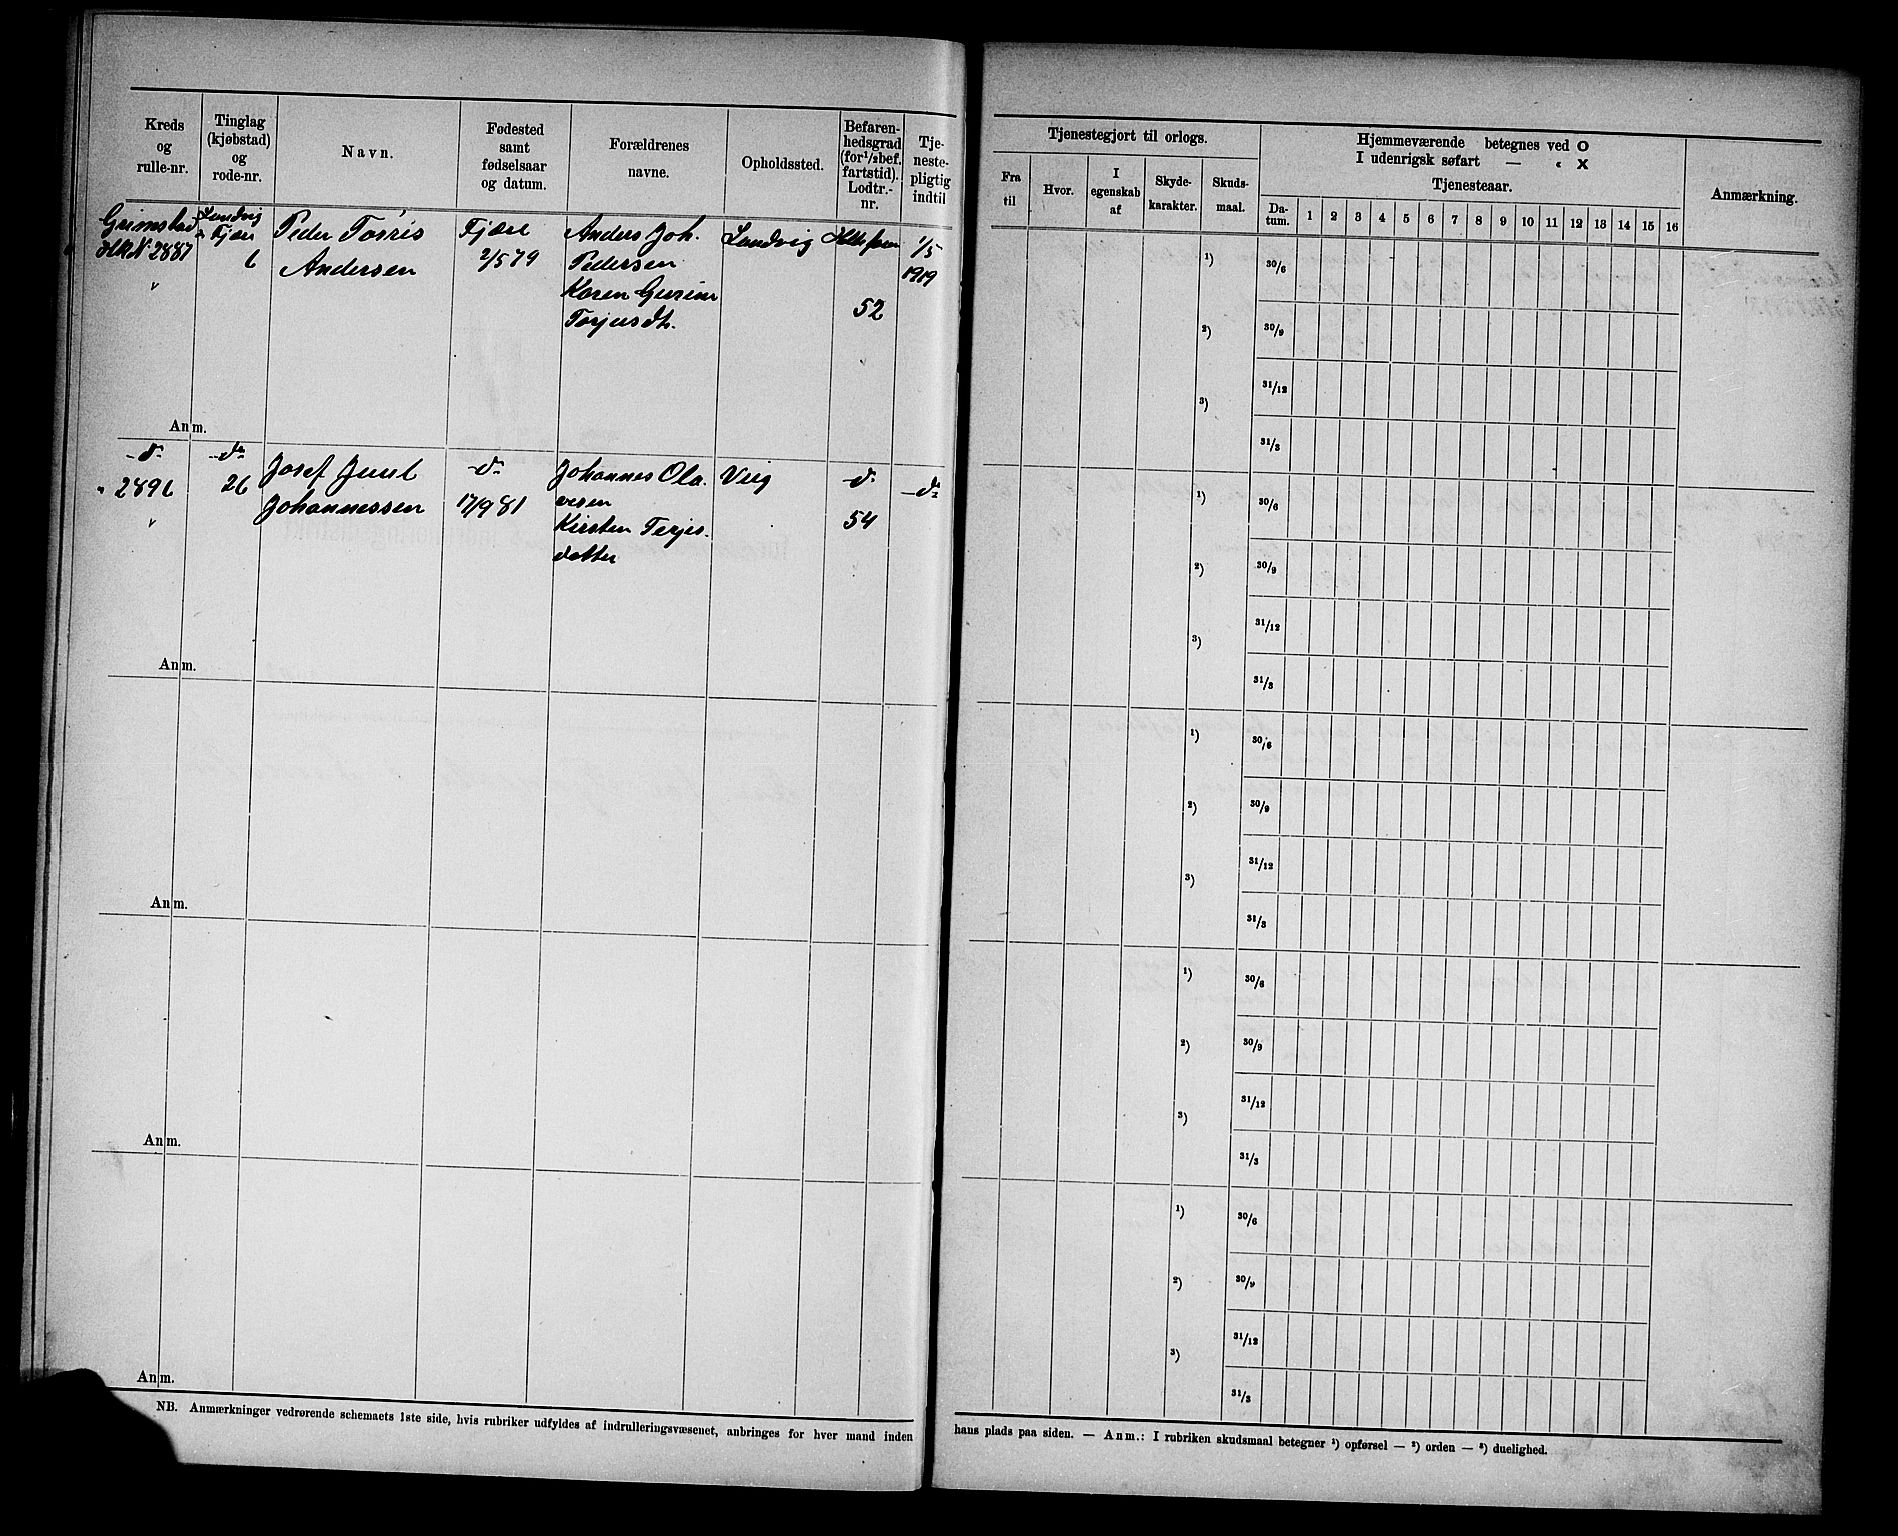 Kreds og rulle-nr.
Tinglag (kjøbstad) og rode-nr.
Navn.
Fødested samt fødselsaar og datum.
Forældrenes navne.
Opholdssted.
Befaren-hedsgrad (for ½ bef. fartstid). Lodtr.-nr.
Tje-neste-pligtig indtil
Grimstad Landvig
Fjære
2887 6
Peder Torris
Andersen
Fjære
2/5 79
Anders Joh.
Pedersen
Karen Gurine
Torjusdt.
Landvig
52
1/5
1919
Anm.
- d° -
2896
- d° -
26
Josef Juul
Johannessen
- d° -
17/9 81
Johannes Ola-
vesen
Kirsten Terjes-
datter
Vig
- d° -
54
- d° -
Anm.
Anm.
Anm.
Anm.
NB. Anmærkninger vedrørende schemaets 1ste side, hvis rubriker udfyldes af indrulleringsvæsenet, anbringes for hver mand inden
Tjenestegjort til orlogs.
Fra til
Hvor.
I egenskab af
Skyde-karakter.
Skuds-maal.
Hjemmeværende betegnes ved O
I udenrigsk søfart — « X
Tjenesteaar.
Da-tum. 1 2 3 4 5 6 7 8 9 10 11 12 13 14 15 16
Anmærkning.
1) 30/6
2) 30/9
3) 31/12
31/3
1) 30/6
2) 30/9
3) 31/12
31/3
1) 30/6
2) 30/9
3) 31/12
31/3
1) 30/6
2) 30/9
3) 31/12
31/3
1) 30/6
2) 30/9
3) 31/12
31/3
hans plads paa siden. — Anm.: I rubriken skudsmaal betegner 1) opførsel — 2) orden — 3) duelighed.